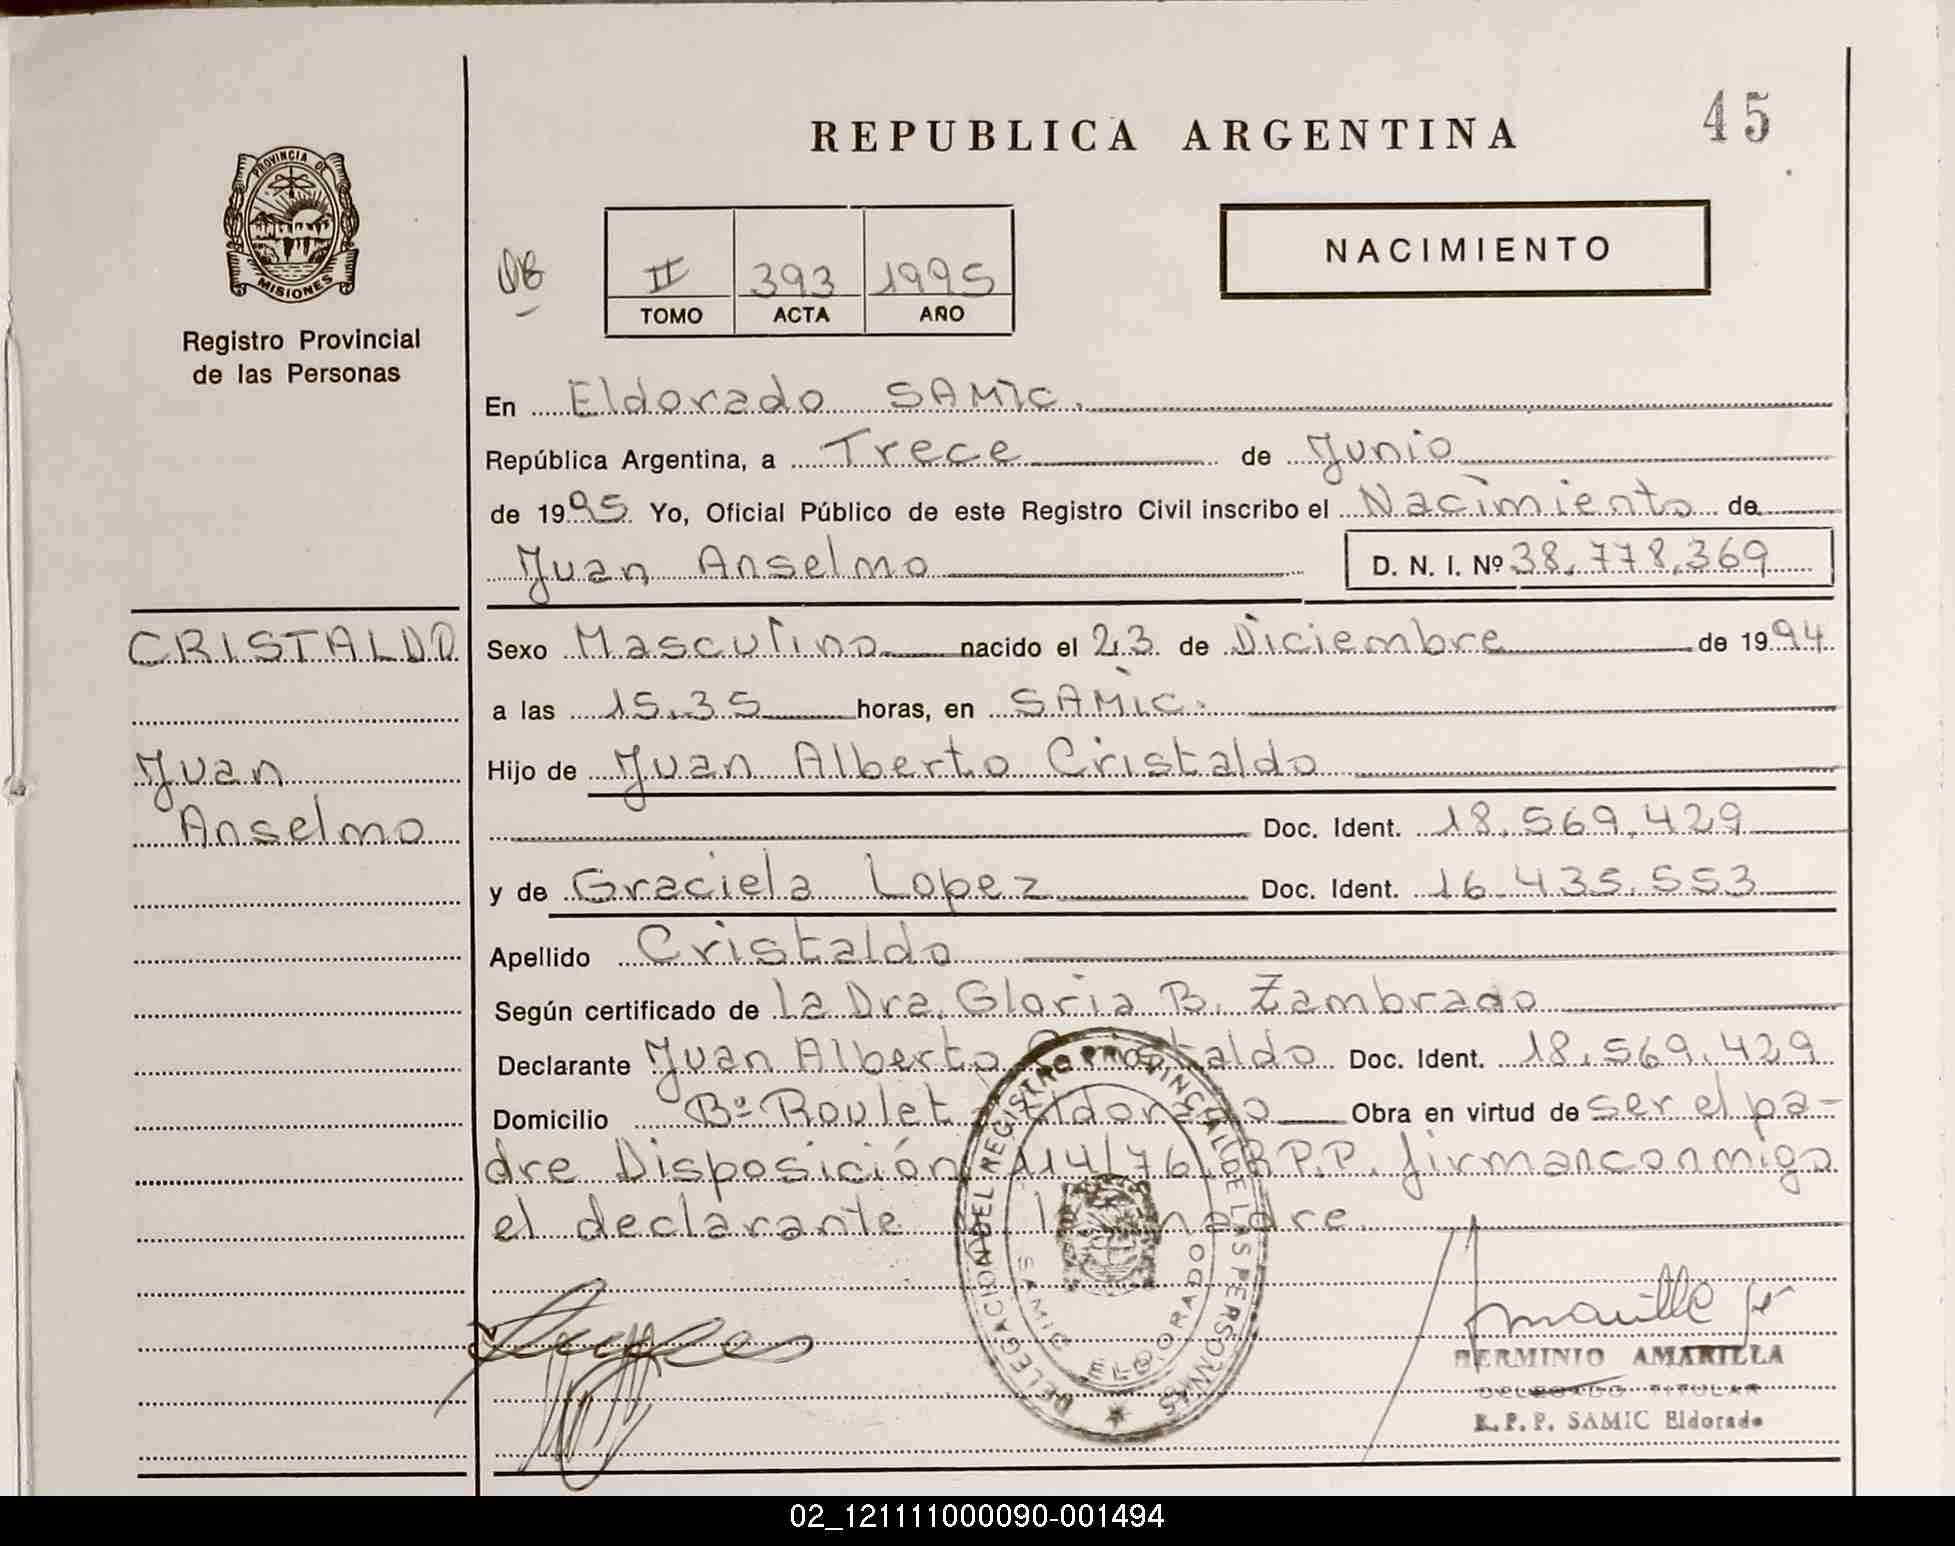 REPUBLICA ARGENTINA
45
PROVINCIA DE
MISIONES
Registro Provincial
de las Personas
II 393 1995
TOMO ACTA AÑO
NACIMIENTO
En Eldorado SAMIC.
República Argentina, a Trece de Junio
de 1995 Yo, Oficial Público de este Registro Civil inscribo el Nacimiento de
Juan Anselmo D. N. I. Nº 38.778.369
CRISTALDO
Juan
Anselmo
Sexo Masculino nacido el 23 de Diciembre de 1994
a las 15.35 horas, en SAMIC.
Hijo de Juan Alberto Cristaldo
Doc. Ident. 18.569.429
y de Graciela Lopez Doc. Ident. 16.435.553
Apellido Cristaldo
Según certificado de la Dra. Gloria B. Zambrado
Declarante Juan Alberto Cristaldo Doc. Ident. 18.569.429
Domicilio Bº Roulet Eldorado Obra en virtud de ser el pa-
dre Disposición 114/76 R.P.P. firman conmigo
el declarante madre.
DELEGACION DEL REGISTRO PROVINCIAL DE LAS PERSONAS
SAMIC ELDORADO
HERMINIO AMARILLA
DELEGADO TITULAR
R. P. P. SAMIC Eldorado
02_121111000090-001494